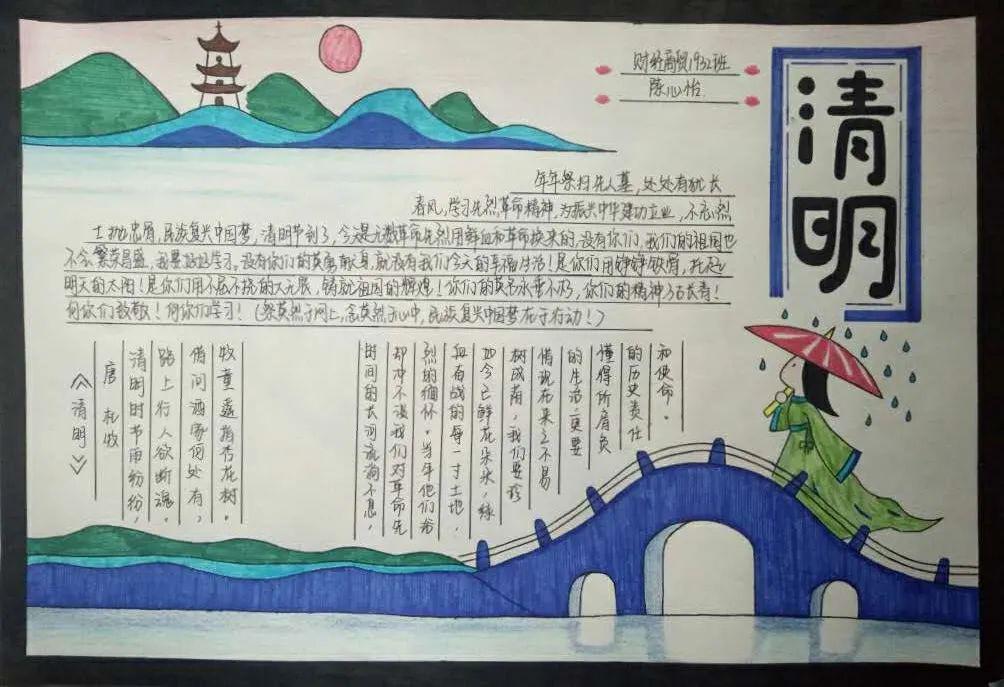 清明
财经商贸1932班
陈心怡
年年祭扫先人墓,处处有犹长
春风,学习先烈革命精神,为振兴中华建功立业,不忘烈
士抛忠骨,民族复兴中国梦。清明节到了,今天是无数革命先烈用鲜血和革命换来的,没有你们,我们的祖国也
不会繁荣昌盛,我要好好学习。没有你们的英勇献身,就没有我们今天的幸福生活!是你们用铮铮铁骨,托起
明天的太阳!是你们用不屈不挠的大无畏,铸就祖国的辉煌!你们的英名永垂不朽,你们的精神万古长青!
向你们致敬!向你们学习!(祭英烈于网上,念英烈于心中,民族复兴中国梦在于行动!)
《清明》
唐 杜牧
清明时节雨纷纷,
路上行人欲断魂。
借问酒家何处有,
牧童遥指杏花树。
时间的长河流淌不息,
却冲不淡我们对革命先
烈的缅怀。当年他们浴
血奋战的每一寸土地,
如今已鲜花朵朵,绿
树成荫,我们要珍
惜现在来之不易
的生活,更要
懂得所肩负
的历史责任
和使命。